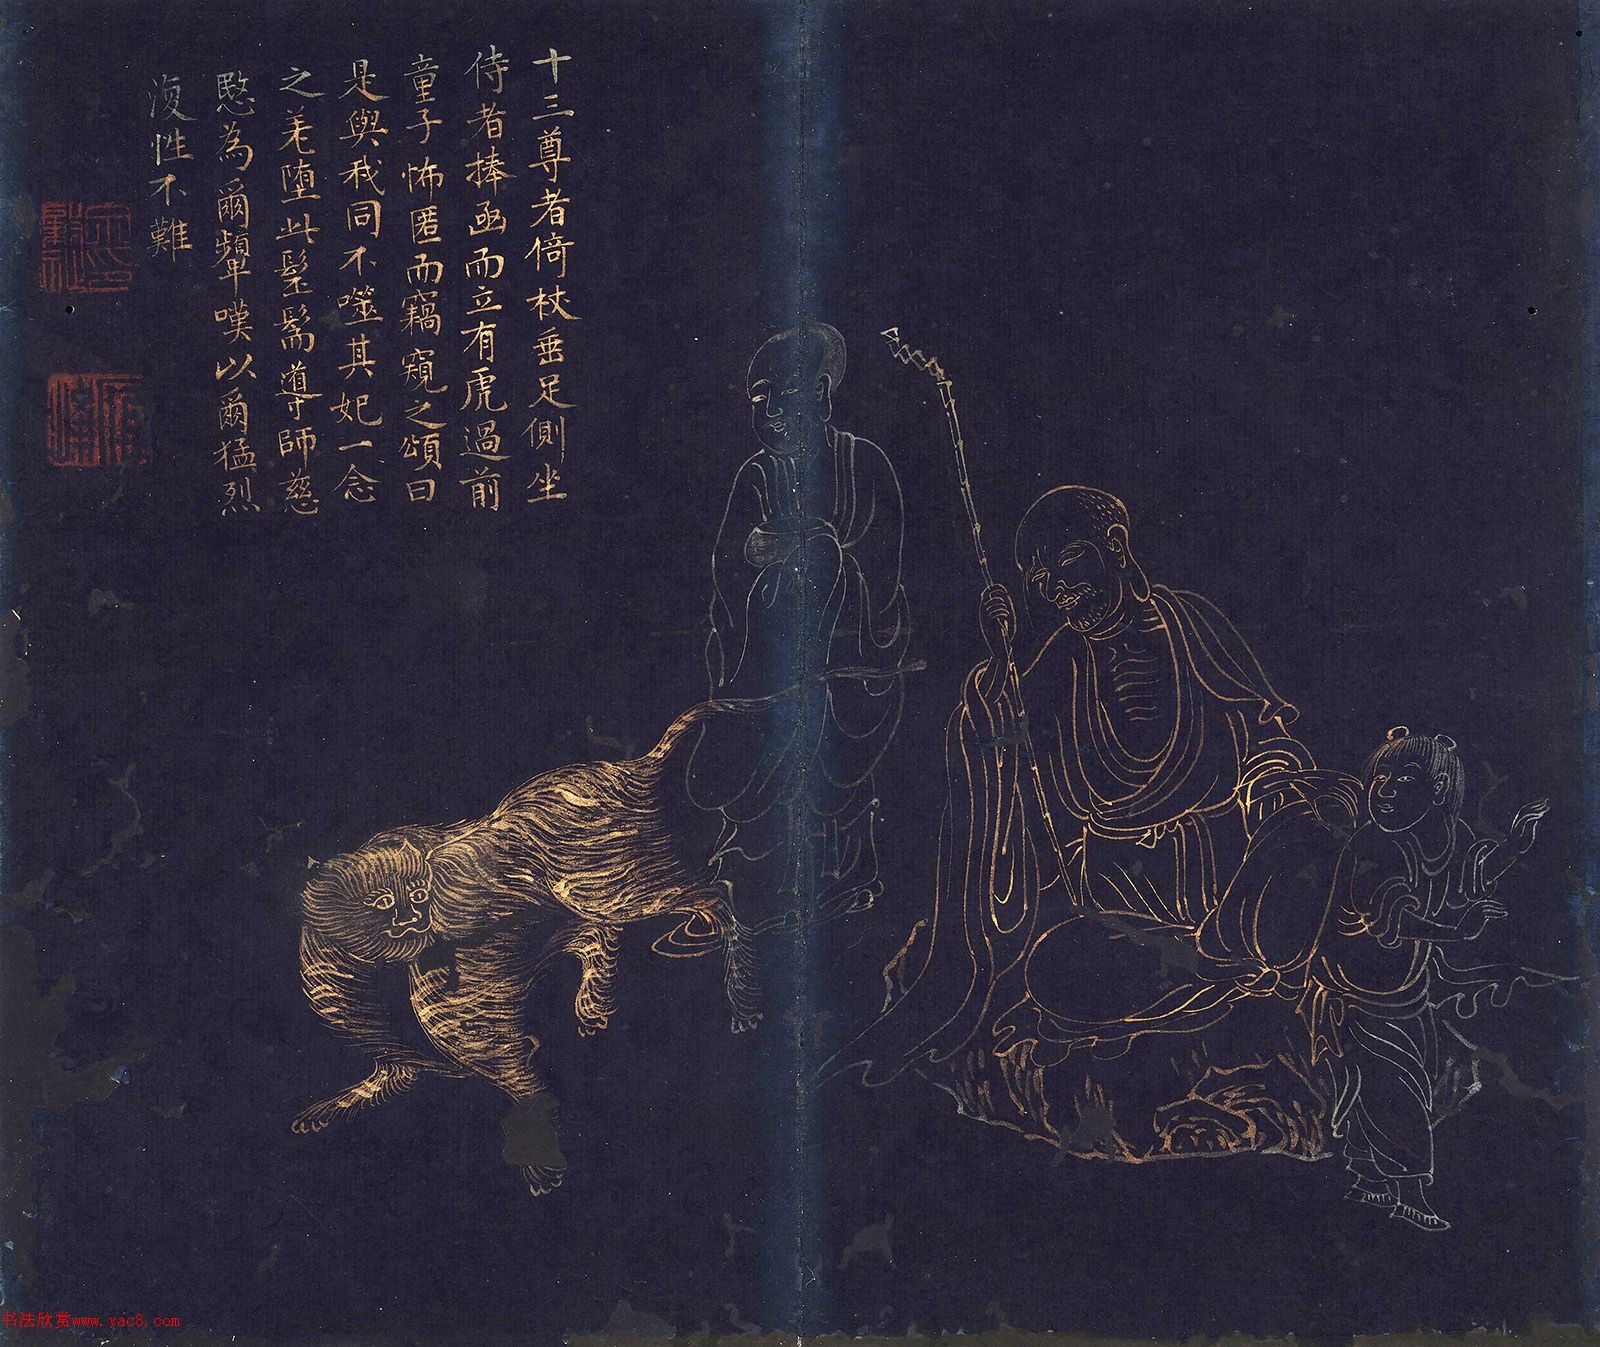 十三尊者倚杖垂足側坐
侍者捧函而立有虎過前
童子怖匿而竊窺之頌曰
是與我同不噬其妃一念
之差堕此髬髵導師慈
愍為爾顰嘆以爾猛烈
復性不難
书法欣赏www.yac8.com